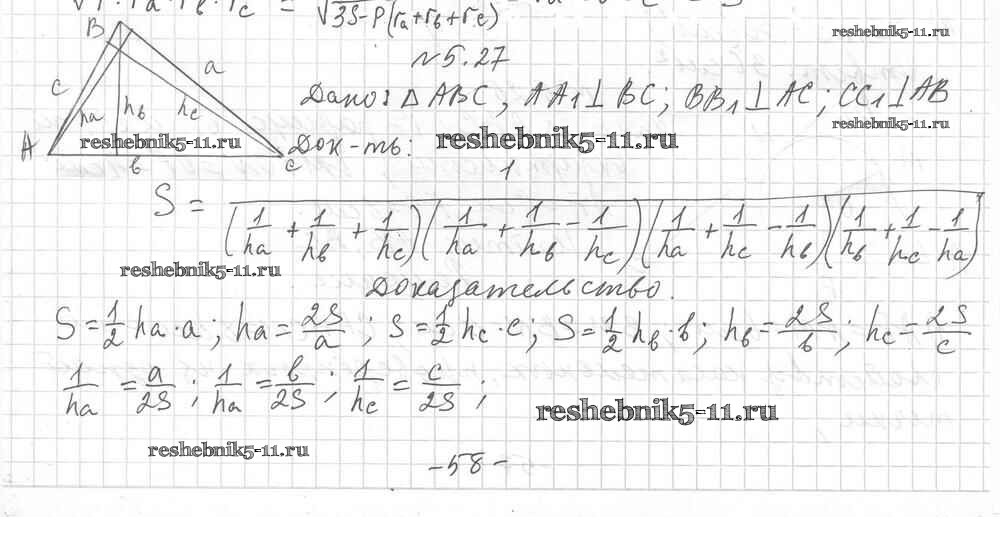 = √3S-P(ra+rв+rc)
reshebnik5-11.ru
№5.27
B
a
c
Дано: △ABC, AA1⊥BC; BB1⊥AC; CC1⊥AB
ha hв hc
reshebnik5-11.ru
A
reshebnik5-11.ru
Док-ть: reshebnik5-11.ru
в
c
S = 1/((1/ha + 1/hв + 1/hc)(1/ha + 1/hв - 1/hc)(1/ha + 1/hc - 1/hв)(1/hв + 1/hc - 1/ha))
reshebnik5-11.ru
Доказательство.
S = 1/2 ha·a; ha = 2S/a; S = 1/2 hc·c; S = 1/2 hв·в; hв = 2S/в; hc = 2S/c
1/ha = a/2S; 1/ha = в/2S; 1/hc = c/2S;
reshebnik5-11.ru
reshebnik5-11.ru
-58-